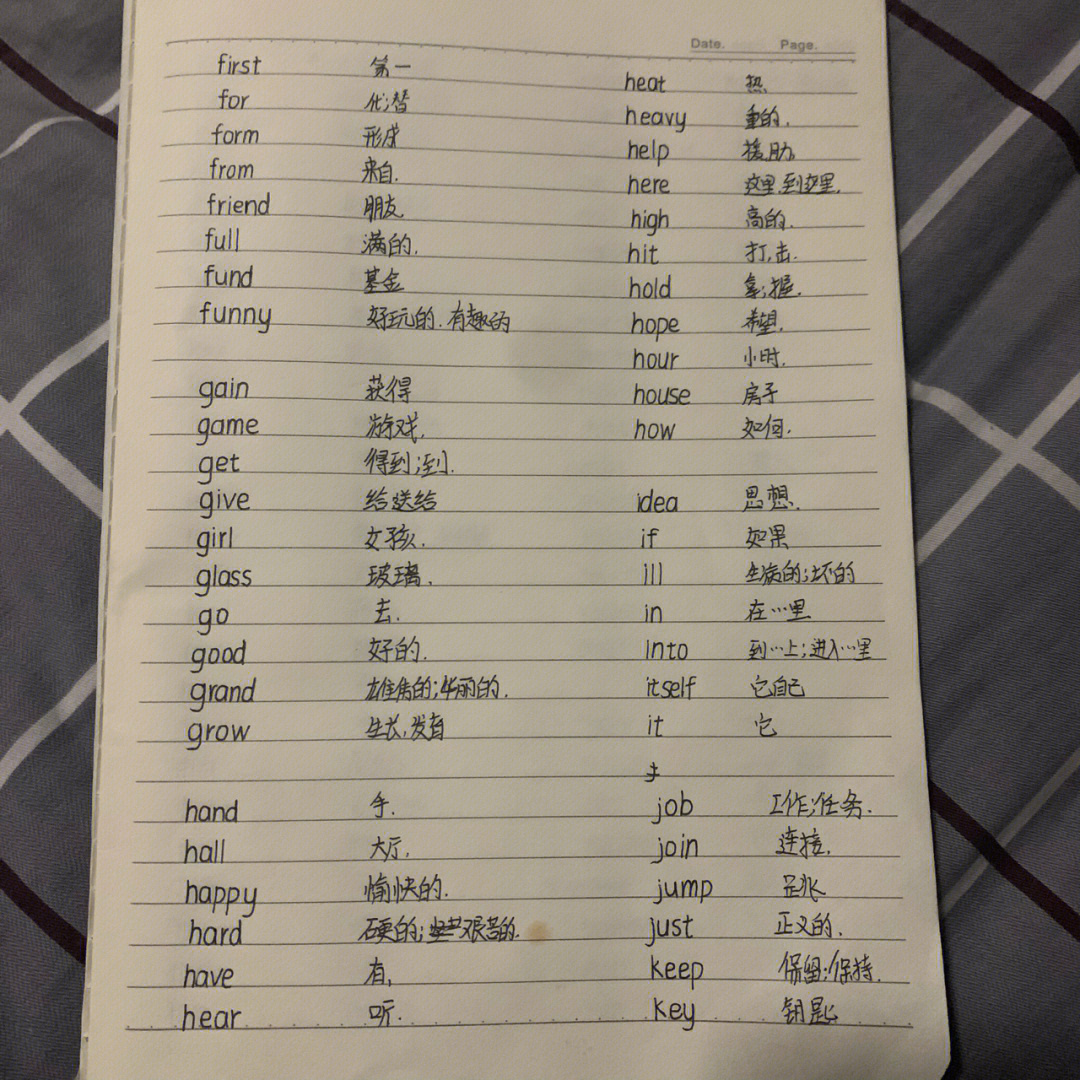 Date. Page.
first 第一
for 代;替
form 形成
from 来自.
friend 朋友
full 满的.
fund 基金
funny 好玩的.有趣的
gain 获得
game 游戏.
get 得到;到.
give 给送给
girl 女孩.
glass 玻璃.
go 去.
good 好的.
grand 雄伟的;华丽的.
grow 生长,发育
hand 手.
hall 大厅.
happy 愉快的.
hard 硬的;艰苦的.
have 有,
hear 听.
heat 热
heavy 重的.
help 援助
here 这里.到这里.
high 高的.
hit 打,击.
hold 拿;握.
hope 希望.
hour 小时.
house 房子
how 如何.
idea 思想.
if 如果
ill 生病的;坏的
in 在…里
into 到…上;进入…里
itself 它自己
it 它
job 工作;任务.
join 连接.
jump 跳
just 正义的.
keep 保留;保持.
key 钥匙